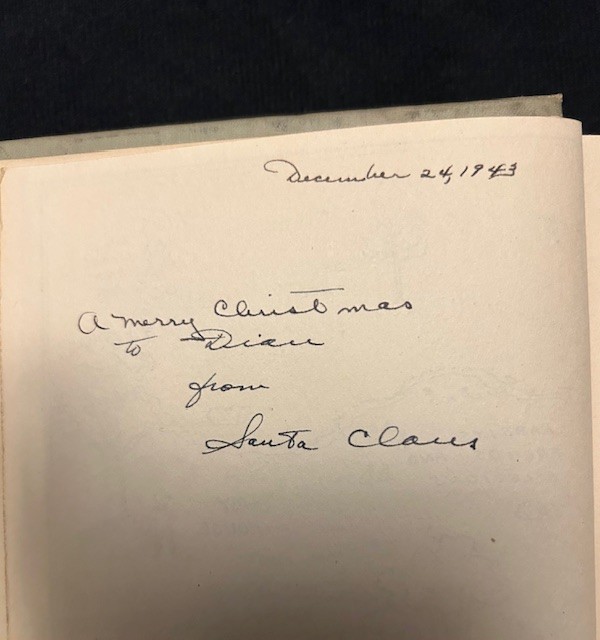 December 24, 1943
A Merry Christmas
to Dian
from
Santa Claus